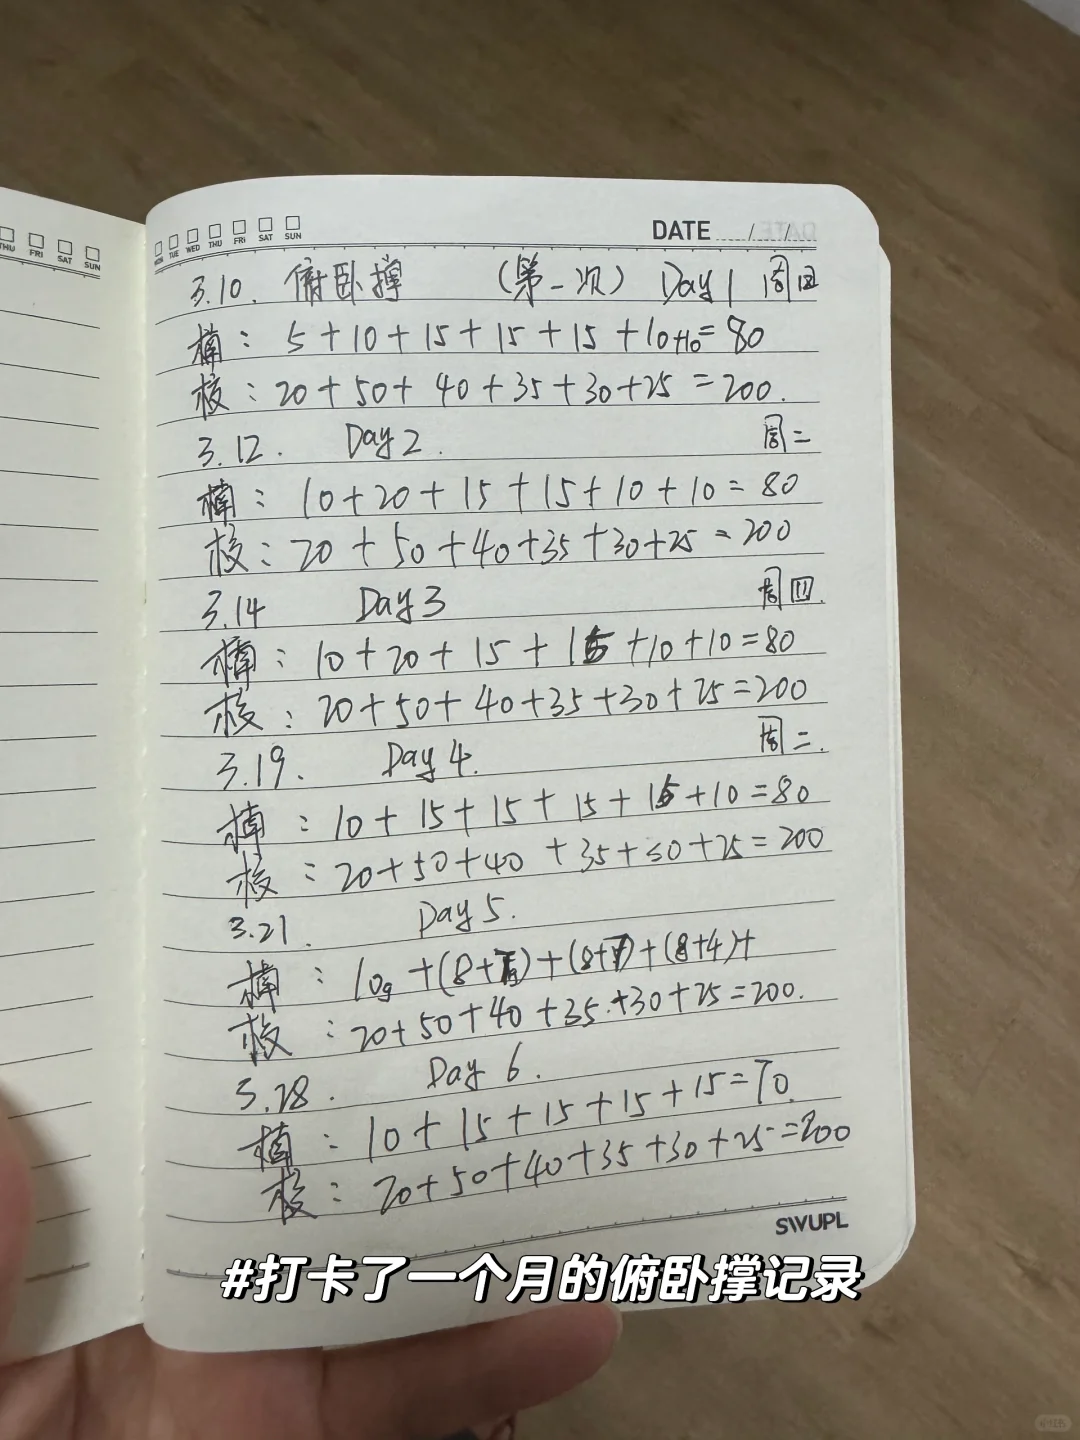 THU FRI SAT SUN
MON TUE WED THU FRI SAT SUN
DATE / /
3.10. 俯卧撑 (第一次) Day1 周四
楠: 5+10+15+15+15+10+10=80
棪: 20+50+40+35+30+25=200.
3.12. Day2. 周二
楠: 10+20+15+15+10+10=80
棪: 20+50+40+35+30+25=200
3.14 Day3 周四.
楠: 10+20+15+15+10+10=80
棪: 20+50+40+35+30+25=200
3.19. Day4. 周二.
楠: 10+15+15+15+15+10=80
棪: 20+50+40+35+30+25=200
3.21. Day5.
楠: 10+(8+)+(8+7)+(8+4)+
棪: 20+50+40+35.+30+25=200.
3.28. Day 6.
楠: 10+15+15+15+15=70.
棪: 20+50+40+35+30+25=200
SWUPL
#打卡了一个月的俯卧撑记录